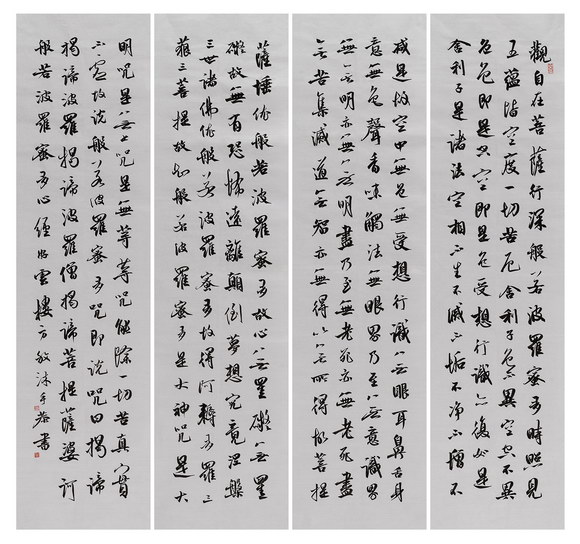 觀自在菩薩行深般若波羅蜜多時照見
五蘊皆空度一切苦厄舍利子色不異空空不異
色色即是空空即是色受想行識亦復如是
舍利子是諸法空相不生不滅不垢不净不增不
减是故空中無色無受想行識無眼耳鼻舌身
意無色聲香味觸法無眼界乃至無意識界
無無明亦無無明盡乃至無老死亦無老死盡
無苦集滅道無智亦無得以無所得故菩提
薩埵依般若波羅蜜多故心無罣礙無罣
礙故無有恐怖遠離顛倒夢想究竟涅槃
三世諸佛依般若波羅蜜多故得阿耨多羅三
藐三菩提故知般若波羅蜜多是大神咒是大
明咒是無上咒是無等等咒能除一切苦真實
不虛故説般若波羅蜜多咒即説咒曰揭諦
揭諦波羅揭諦波羅僧揭諦菩提薩婆訶
般若波羅蜜多心經臥雲樓方敏沐手恭書